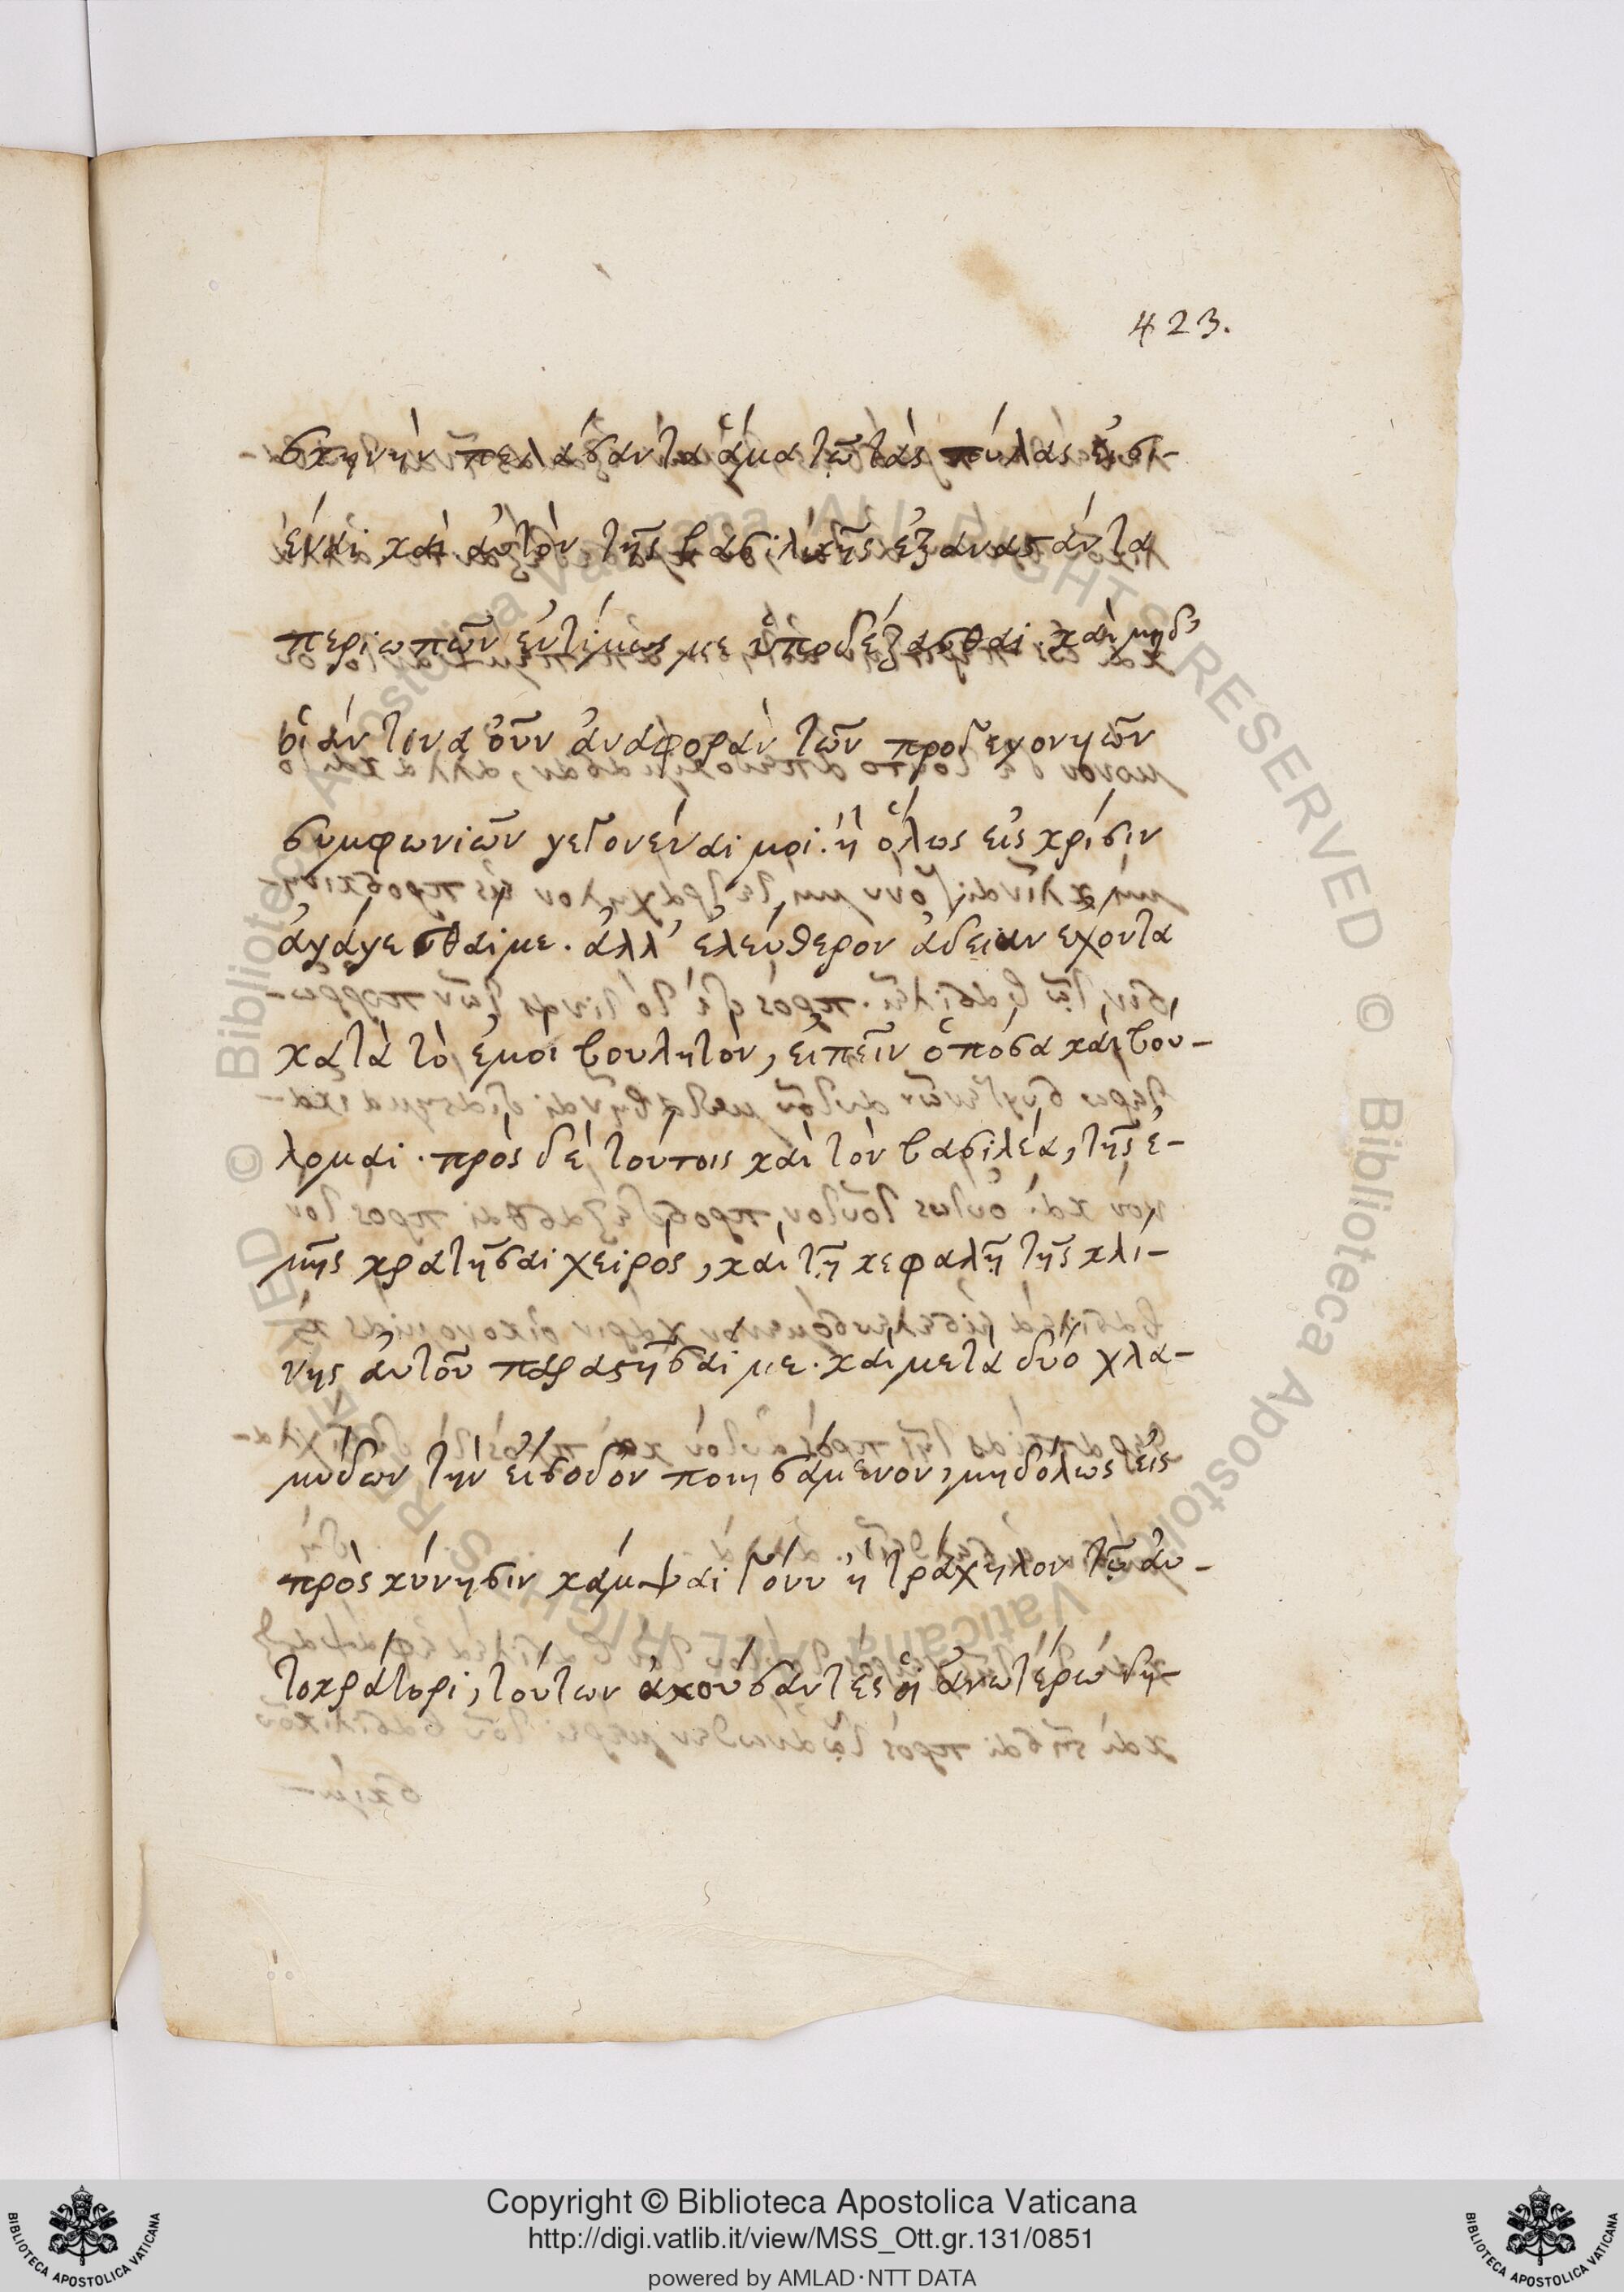 423.
σκηνὴν πελάσαντα ἅμα τῷ τὰς πύλας εἰσι-
έναι καὶ αὐτὸν τῆς βασιλικῆς ἐξαναστάντα
περιωπῶν ἐντίμως με ὑποδέξασθαι. καὶ μηδ'
οἱάντινα οὖν ἀναφορὰν τῶν προγεγονυιῶν
συμφωνιῶν γεγονέναι μοι. ἢ ὅλως εἰς κρίσιν
ἀγάγεσθαί με. ἀλλ' ἐλεύθερον ἄδειαν ἔχοντα
κατὰ τὸ ἐμοὶ βουλητὸν, εἰπεῖν ὁπόσα καὶ βού-
λομαι. πρὸς δὲ τούτοις καὶ τὸν βασιλέα, τῆς ἐ-
μῆς κρατῆσαι χειρὸς, καὶ τῇ κεφαλῇ τῆς κλί-
νης αὐτοῦ παραστῆσαί με. καὶ μετὰ δύο χλα-
μύδων τὴν εἴσοδον ποιησάμενον, μηδόλως εἰς
πρὸς κύνησιν κάμψαι γόνυ ἢ τράχηλον τῷ αὐ-
τοκράτορι, τούτων ἀκούσαντες οἱ ἀνωτέρω δη-
Copyright © Biblioteca Apostolica Vaticana
http://digi.vatlib.it/view/MSS_Ott.gr.131/0851
powered by AMLAD·NTT DATA
BIBLIOTECA APOSTOLICA VATICANA
BIBLIOTECA APOSTOLICA VATICANA